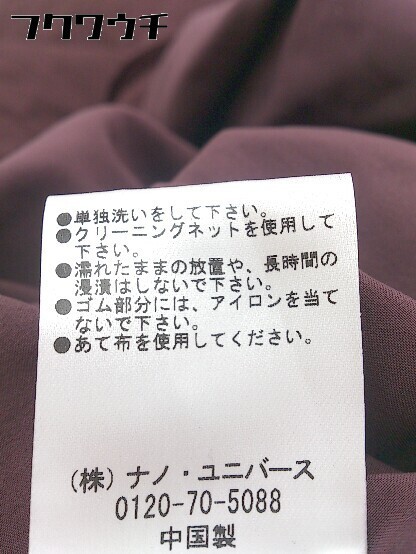 フクワウチ
●単独洗いをして下さい。
●クリーニングネットを使用して
下さい。
●濡れたままの放置や、長時間の
浸漬はしないで下さい。
●ゴム部分には、アイロンを当て
ないで下さい。
●あて布を使用してください。
(株)ナノ・ユニバース
0120-70-5088
中国製